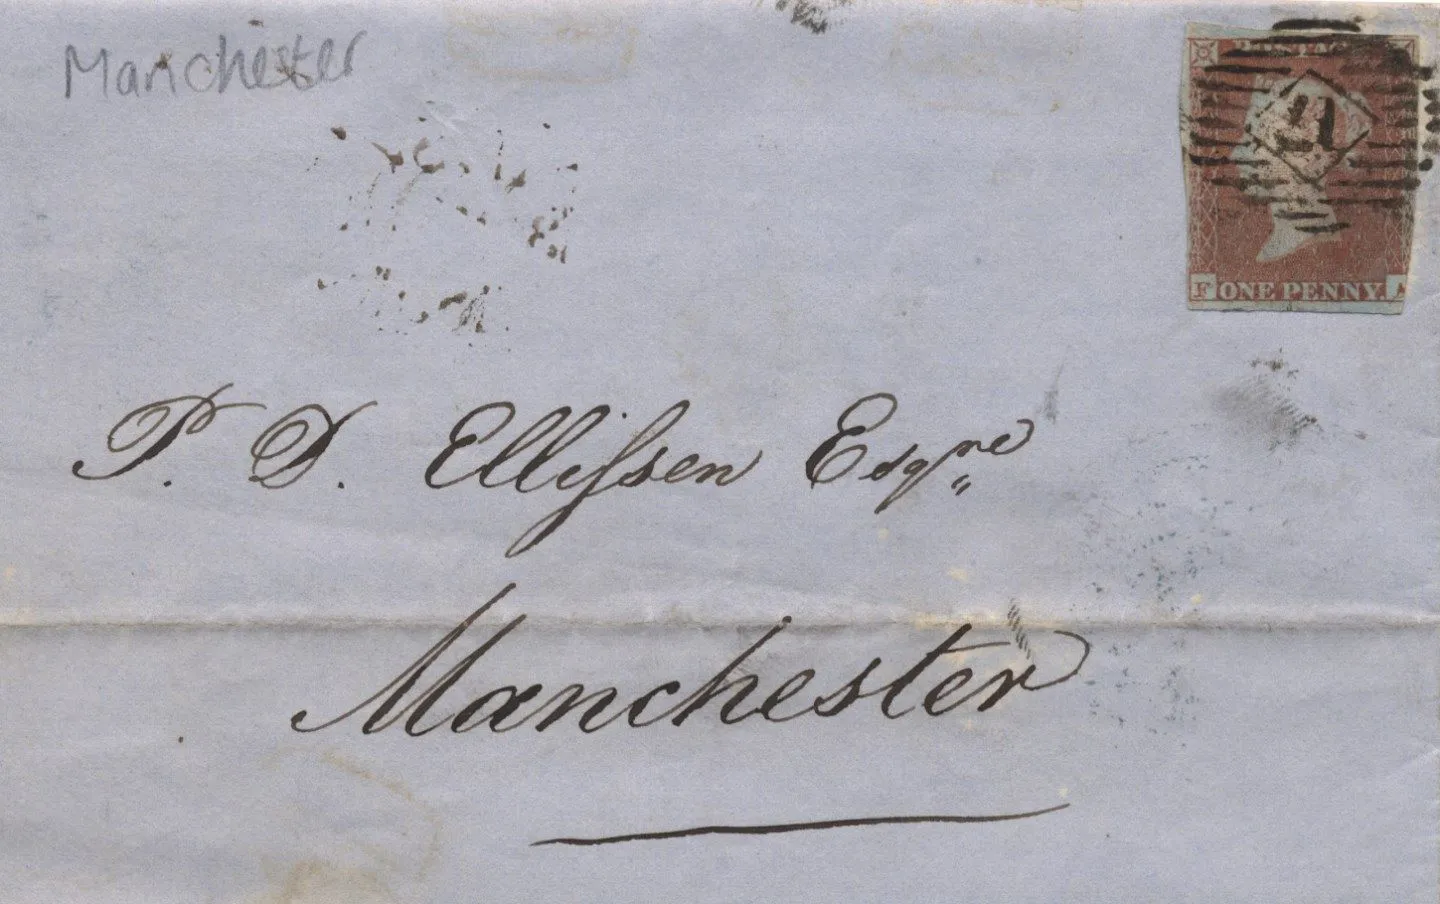 Manchester
POSTAGE
ONE PENNY.
P. D. Ellissen Esqre
Manchester